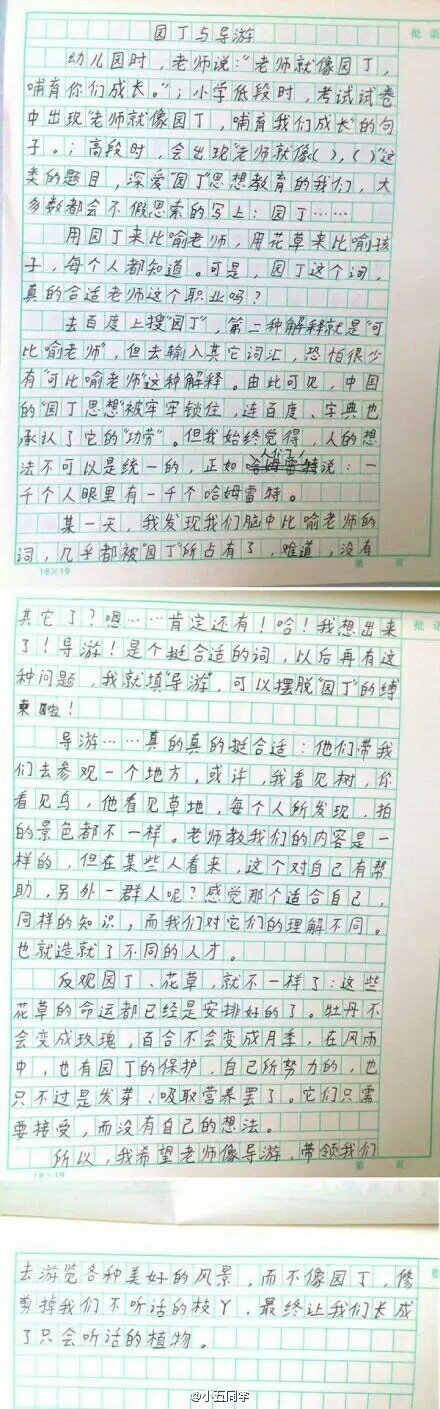 园丁与导游
幼儿园时，老师说："老师就像园丁，
哺育你们成长。"；小学低段时，考试试卷
中出现"老师就像园丁，哺育我们成长"的句
子。；高段时，会出现"老师就像（ ），（ ）"这
类的题目，深爱"园丁"思想教育的我们，大
多数都会不假思索的写上：园丁……
用园丁来比喻老师，用花草来比喻孩
子，每个人都知道。可是，园丁这个词，
真的合适老师这个职业吗？
去百度上搜"园丁"，第二种解释就是"可
比喻老师"，但去输入其它词汇，恐怕很少
有"可比喻老师"这种解释。由此可见，中国
的"园丁思想"被牢牢锁住，连百度、字典也
承认了它的"功劳"。但我始终觉得，人的想
法不可以是统一的，正如人们说：一
千个人眼里有一千个哈姆雷特。
某一天，我发现我们脑中比喻老师的
词，几乎都被"园丁"所占有了，难道，没有
18×19 第 页
其它了？嗯……肯定还有！哈！我想出来
了！导游！是个挺合适的词，以后再有这
种问题，我就填"导游"，可以摆脱"园丁"的缚
束啦！
导游……真的真的挺合适：他们带我
们去参观一个地方，或许，我看见树，你
看见鸟，他看见草地，每个人所发现，拍
的景色都不一样。老师教我们的内容是一
样的，但在某些人看来，这个对自己有帮
助，另外一群人呢？感觉那个适合自己，
同样的知识，而我们对它们的理解不同。
也就造就了不同的人才。
反观园丁、花草，就不一样了：这些
花草的命运都已经是安排好的了。牡丹不
会变成玫瑰，百合不会变成月季，在风雨
中，也有园丁的保护，自己所努力的，也
只不过是发芽、吸取营养罢了。它们只需
要接受，而没有自己的想法。
所以，我希望老师像导游，带领我们
18×19 第 页
去游览各种美好的风景，而不像园丁，修
剪掉我们不听话的枝丫，最终让我们长成
了只会听话的植物。
@小五同学